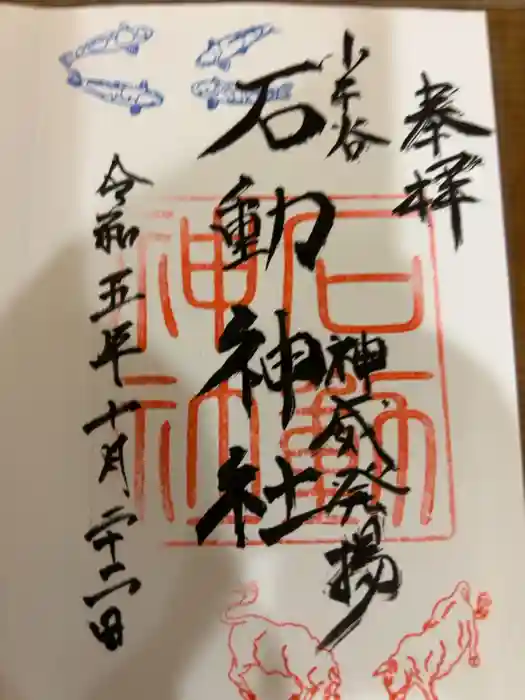 奉拝
小千谷
石動神社
神威発揚
石動神社
令和五年十月二十二日